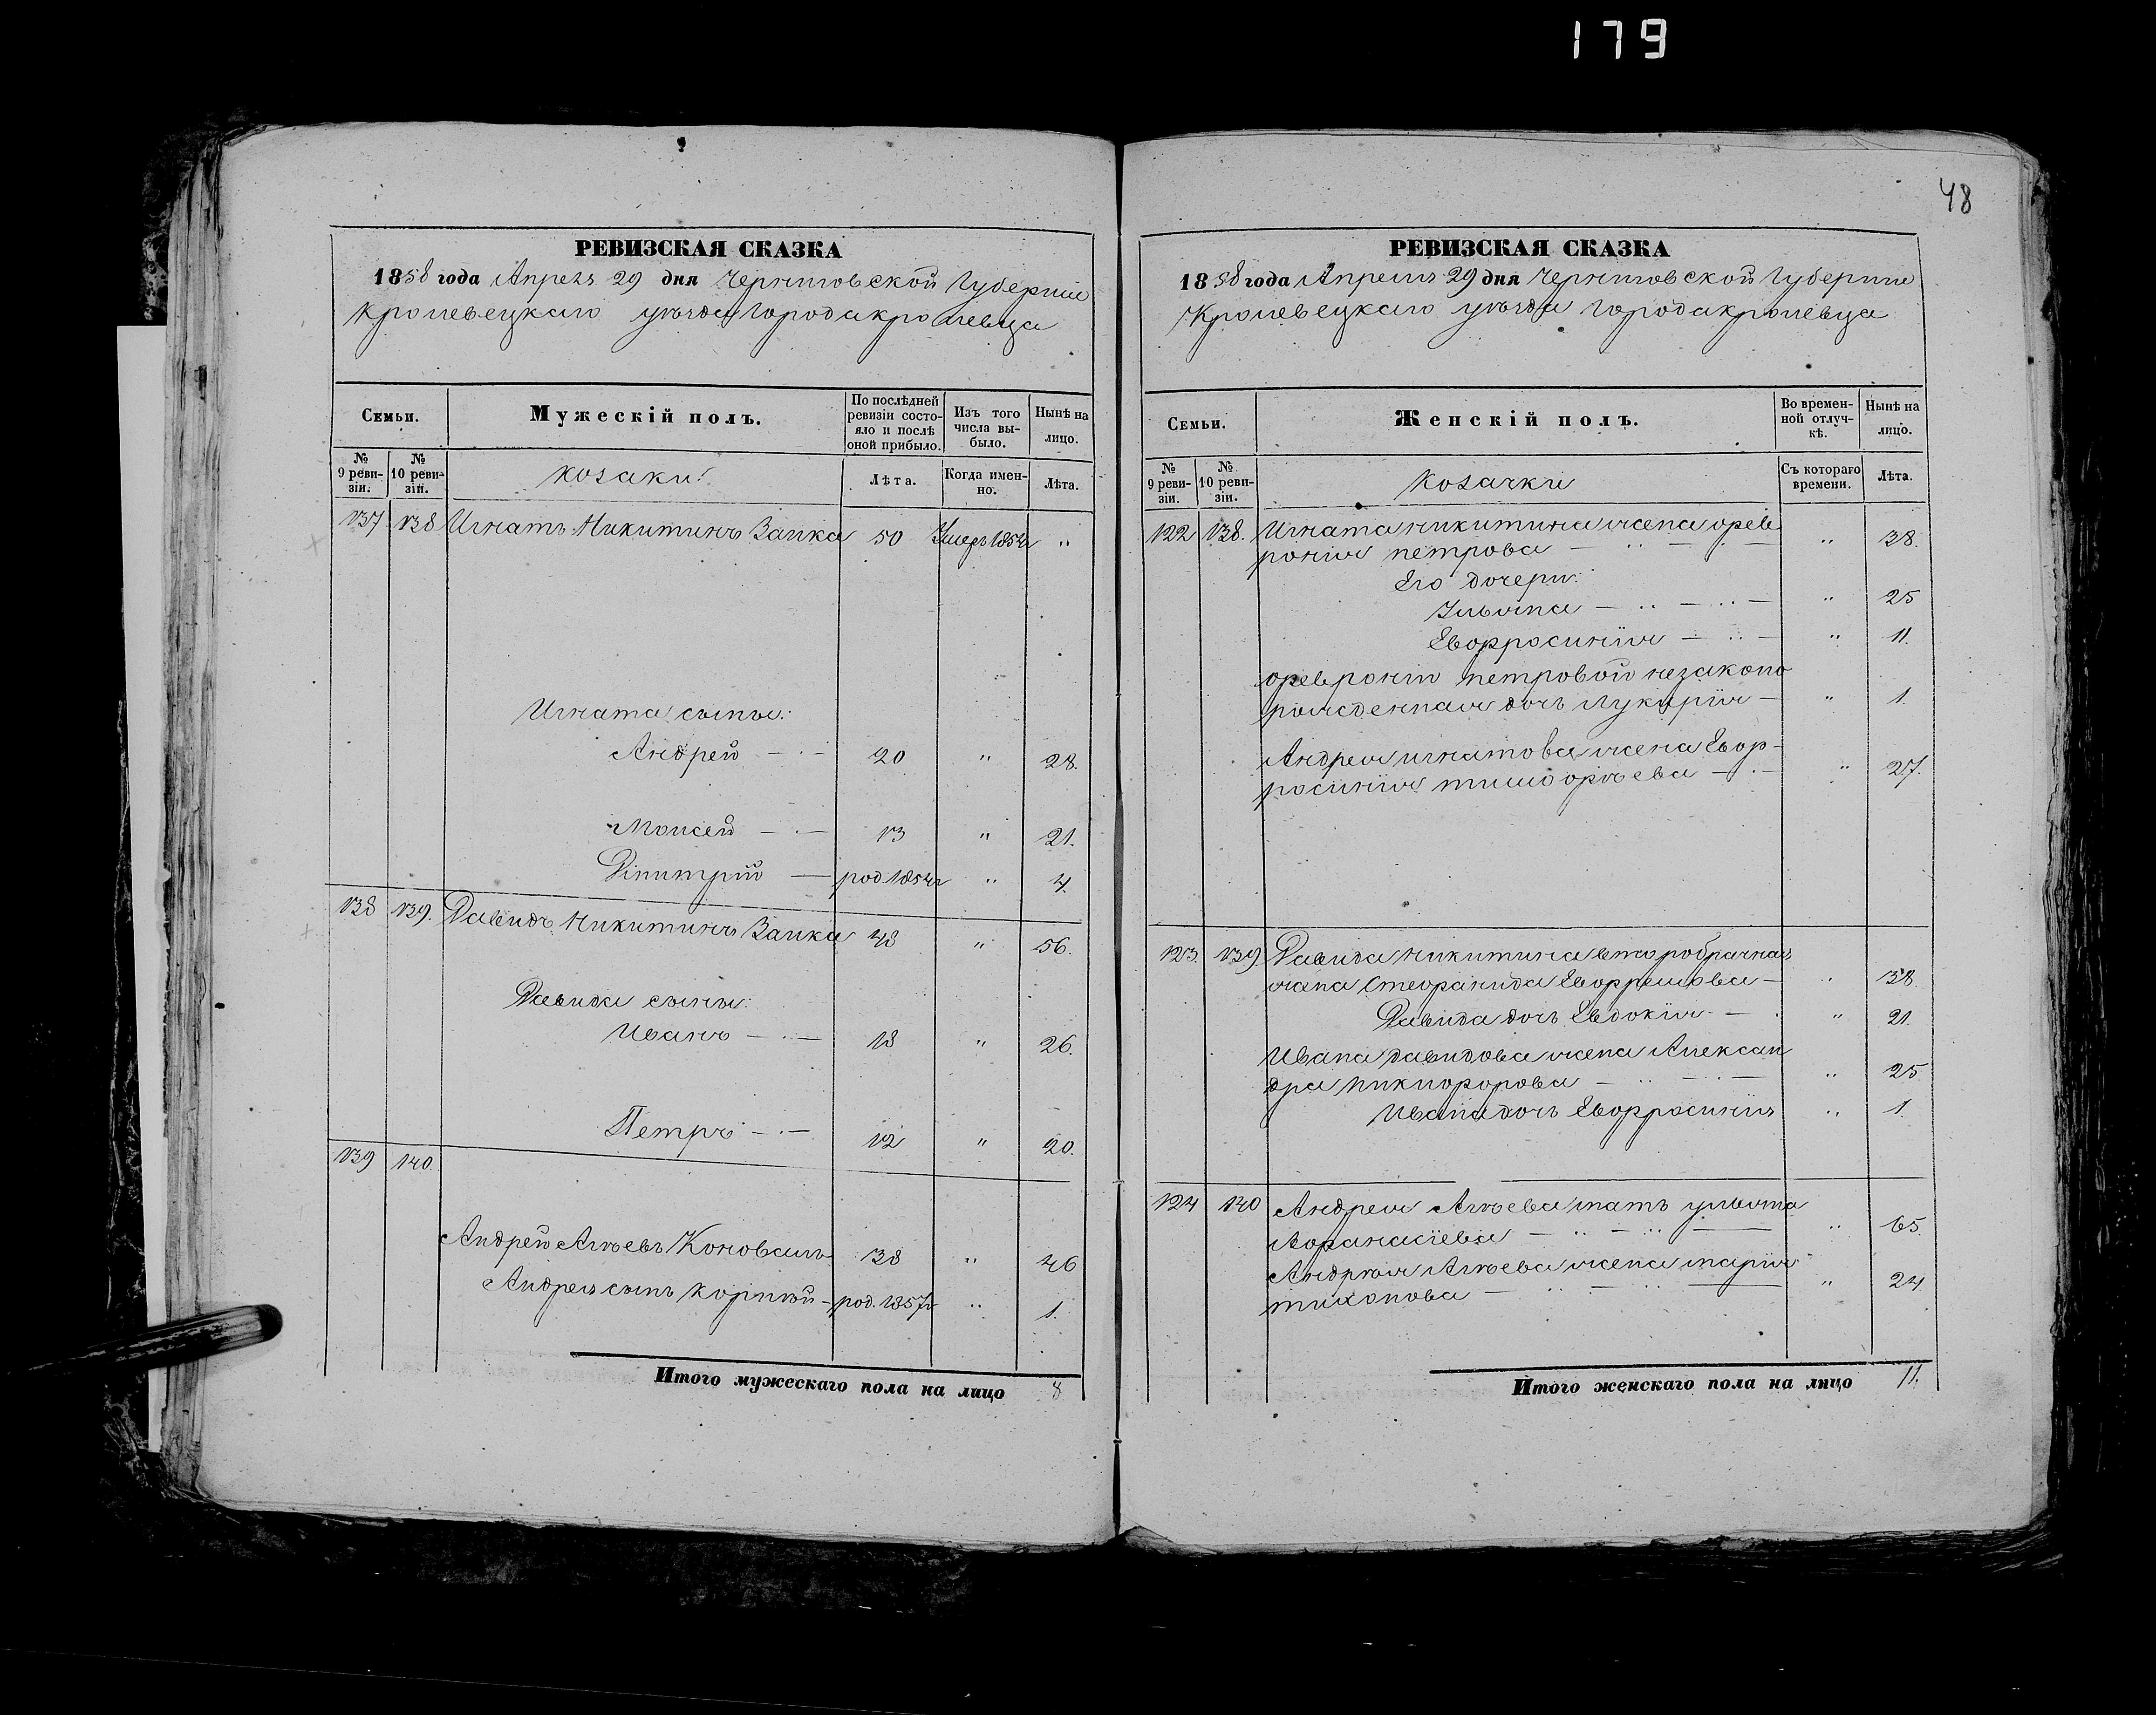 179
48
РЕВИЗСКАЯ СКАЗКА
1858 года Апреля 29 дня Черниговской Губерніи
Кролевецкаго уѣзда города Кролевца
Семьи.
Мужескій полъ.
По послѣдней ревизіи состояло и послѣ оной прибыло.
Изъ того числа выбыло.
Нынѣ на лицо.
№ 9 ревизіи.
№ 10 ревизіи.
козаки:
Лѣта.
Когда именно.
Лѣта.
137 138 Игнатъ Никитинъ Заика 50 Умеръ 1854г "
Игната сыны:
Андрей — 20 " 28.
Моисей — 13 " 21.
Димитрій — род. 1854г " 4.
138 139. Давидъ Никитинъ Заика 48 " 56.
Давида сыны:
Иванъ — 18 " 26.
Петръ — 12 " 20.
139 140.
Андрей Агѣевъ Коновалъ 38 " 46
Андрея сынъ Корнѣй — род. 1857г " 1.
Итого мужескаго пола на лицо 8
РЕВИЗСКАЯ СКАЗКА
1858 года Апреля 29 дня Черниговской Губерніи
Кролевецкаго уѣзда города Кролевца
Семьи.
Женскій полъ.
Во временной отлучкѣ.
Нынѣ на лицо.
№ 9 ревизіи.
№ 10 ревизіи.
Козачки
Съ котораго времени.
Лѣта.
122 138. Игната Никитина жена Фев
ронія Петрова — " 38.
Его дочери:
Ульяна — " 25
Евфросинія — " 11.
Февроніи Петровой незаконо
рожденная дочь Лукерія — " 1.
Андрея Игнатова жена Евф-
росинія Тимофѣева — " 27.
123. 139. Давида Никитина второбрачная
жена Стефанида Ефремова — " 38.
Давида дочь Евдокія — " 21.
Ивана Давидова жена Алексан
дра Никифорова — " 25
Ивана дочь Евфросинія " 1.
124 140 Андрея Агѣева мать Ульяна
Афанасіева — " 65.
Андрѣя Агѣева жена Марія
Тихонова — " 24
Итого женскаго пола на лицо 11.